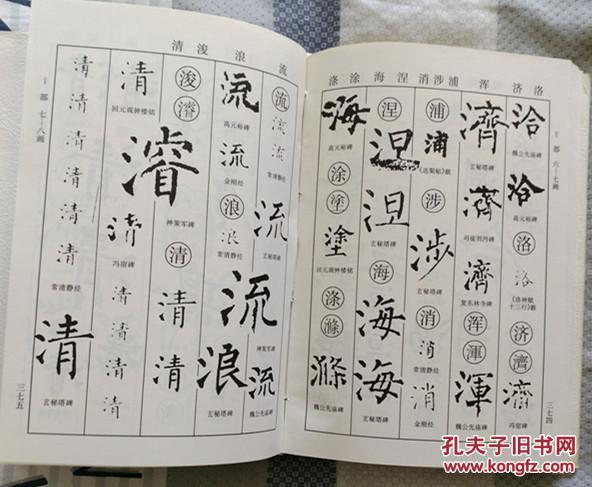 洛济浑浦涉消涅海涂涤
氵部 六-七画
三七四
洽
魏公先庙碑
洽
高元裕碑
洛
洛
《洛神赋
十三行》跋
济
濟
濟
冯宿碑
濟
玄秘塔碑
濟
司徒刘沔碑
濟
复东林寺碑
浑
渾
渾
魏公先庙碑
浦
浦
《送梨帖》跋
涉
涉
玄秘塔碑
消
消
常清静经
消
金刚经
涅
涅
涅
玄秘塔碑
海
海
海
玄秘塔碑
海
高元裕碑
涂
塗
塗
回元观钟楼铭
涤
滌
滌
魏公先庙碑
流浪浚清
流
流
流
常清静经
流
流
神策军碑
流
流
高元裕碑
流
金刚经
浪
浪
常清静经
浪
玄秘塔碑
浚
濬
濬
神策军碑
清
清
清
玄秘塔碑
清
回元观钟楼铭
清
冯宿碑
清
清
清
清
清
清
清
清
清
清
常清静经
清
玄秘塔碑
氵部 七-八画
三七五
孔夫子旧书网
www.kongfz.com